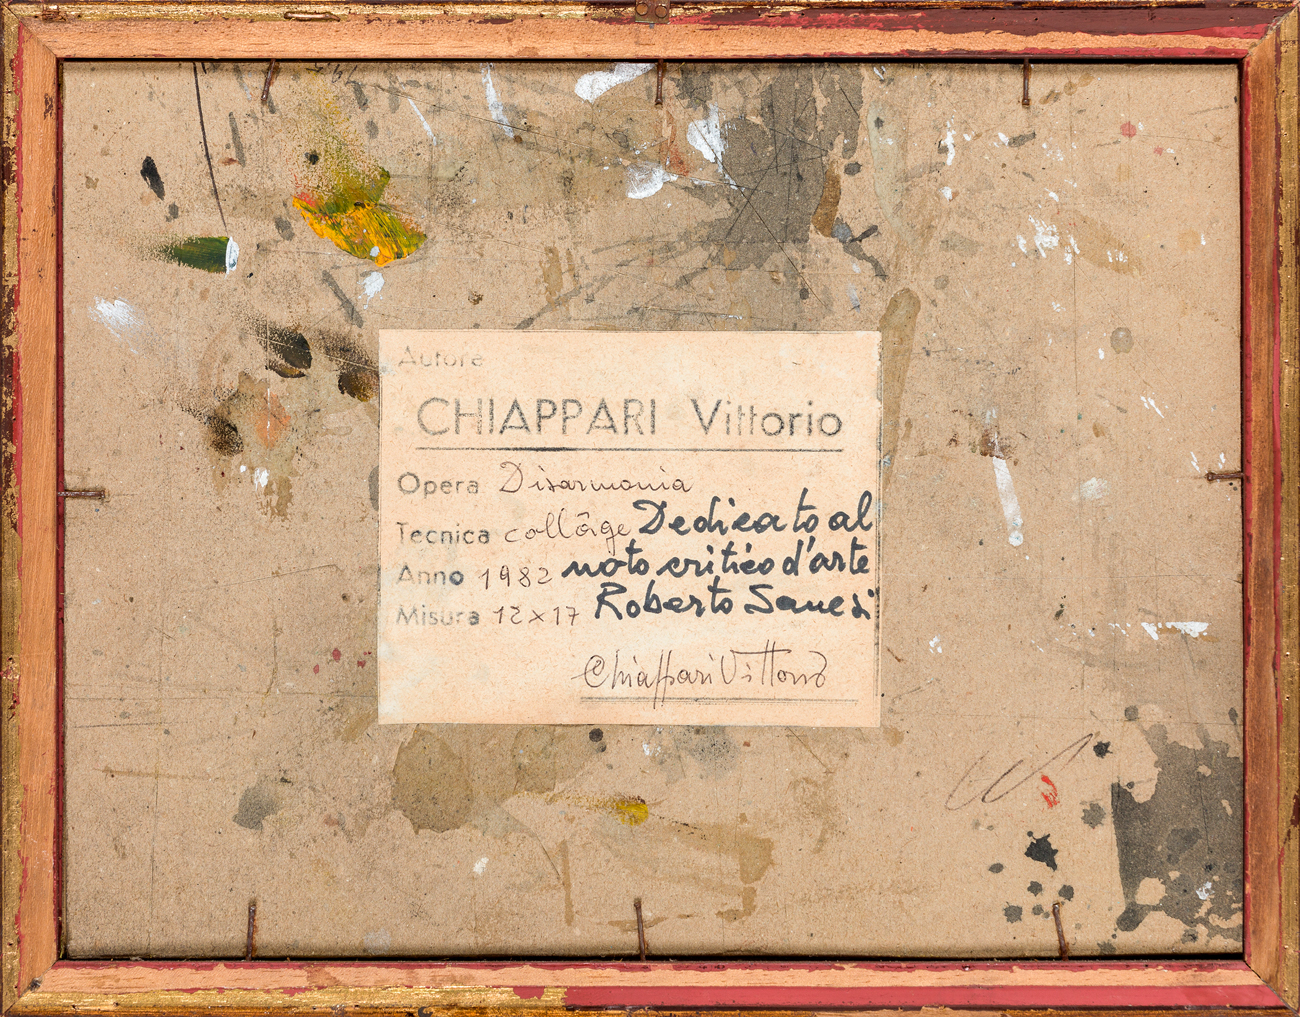 Autore
CHIAPPARI Vittorio
Opera Disarmonia
Tecnica collâge Dedicato al
Anno 1982 noto critico d'arte
Misura 12x17 Roberto Sanesi
Chiappari Vittorio